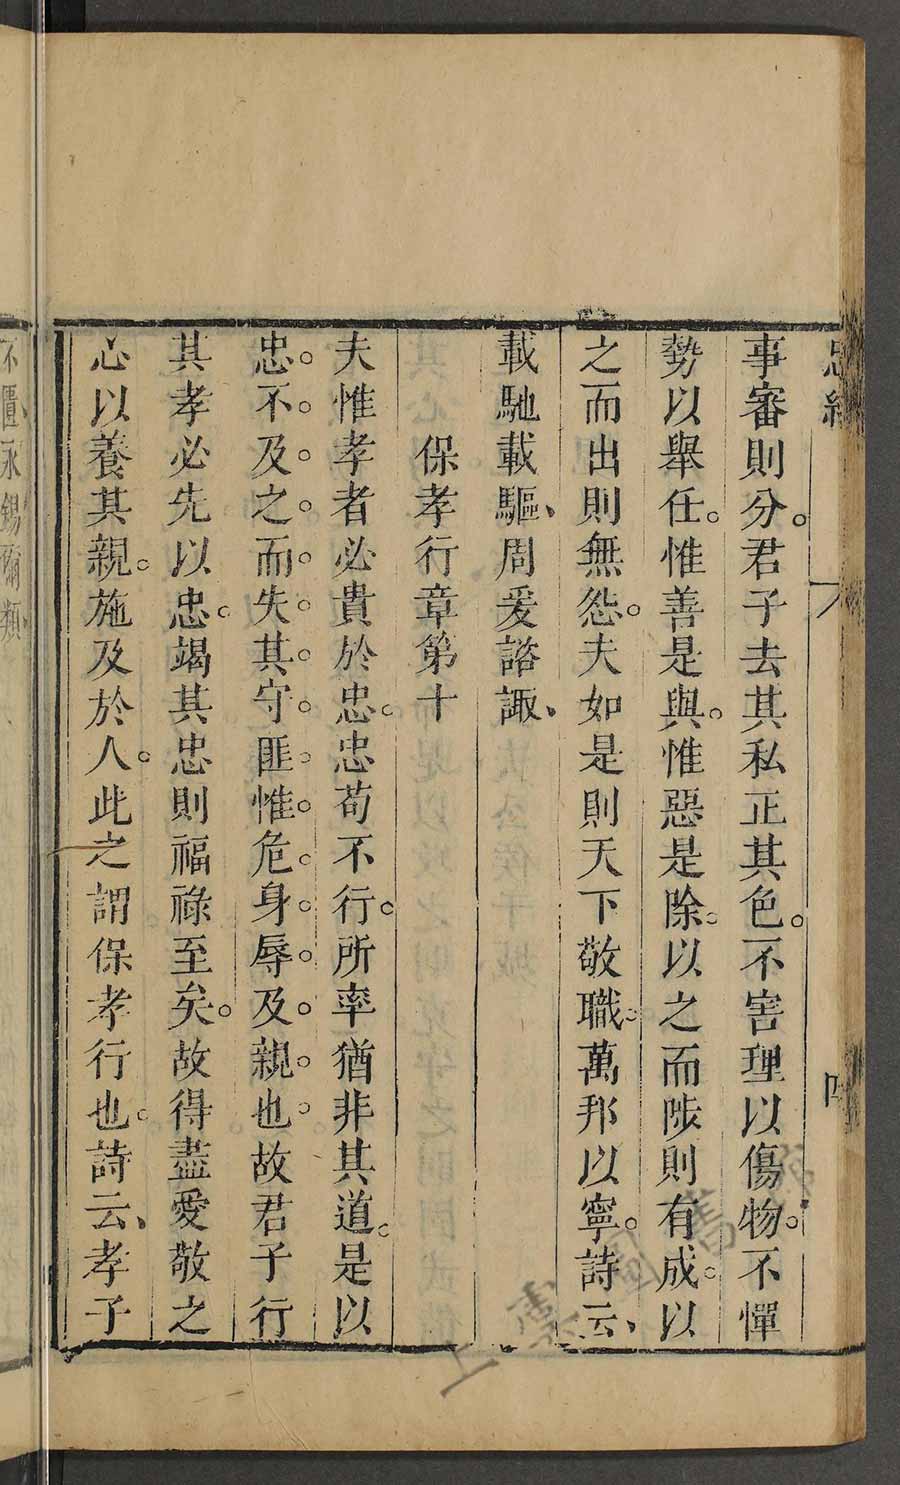 忠經
事審則分。君子去其私正其色。不害理以傷物。不憚
勢以舉任。惟善是與。惟惡是除。以之而陟則有成。以
之而出則無怨。夫如是則天下敬職。萬邦以寧。詩云、
載馳載驅、周爰諮諏、
保孝行章第十
夫惟孝者必貴於忠。忠苟不行。所率猶非其道。是以
忠。不。及。之。而。失。其。守。匪。惟。危。身。辱。及。親。也。故君子行
其孝必先以忠。竭其忠則福祿至矣。故得盡愛敬之
心以養其親。施及於人。此之謂保孝行也。詩云、孝子
不匱、永錫爾類、